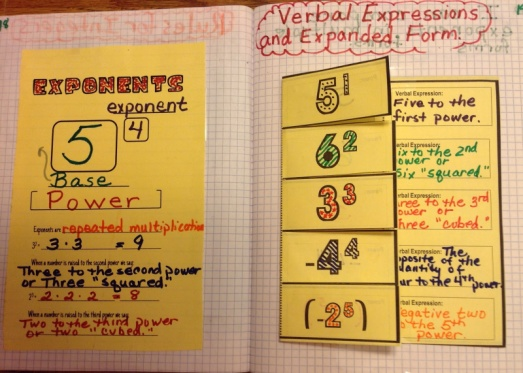 EXPONENTS
exponent
5 4
Base
Power
Exponents are repeated multiplication
3² = 3 · 3 = 9
When a number is raised to the second power we say:
Three to the second power
or Three "squared."
2³ = 2 · 2 · 2 = 8
When a number is raised to the third power we say:
Two to the third power
or two "cubed."
Verbal Expressions
and Expanded Form!
5¹
Verbal Expression:
Five to the
first power.
6²
Verbal Expression:
to the 2nd
or
"squared."
3³
Verbal Expression:
to the 3rd
or
"cubed."
-4⁴
Verbal Expression: The
of
to the 4th
power.
(-2⁵)
Verbal Expression:
two
the 5th
power.